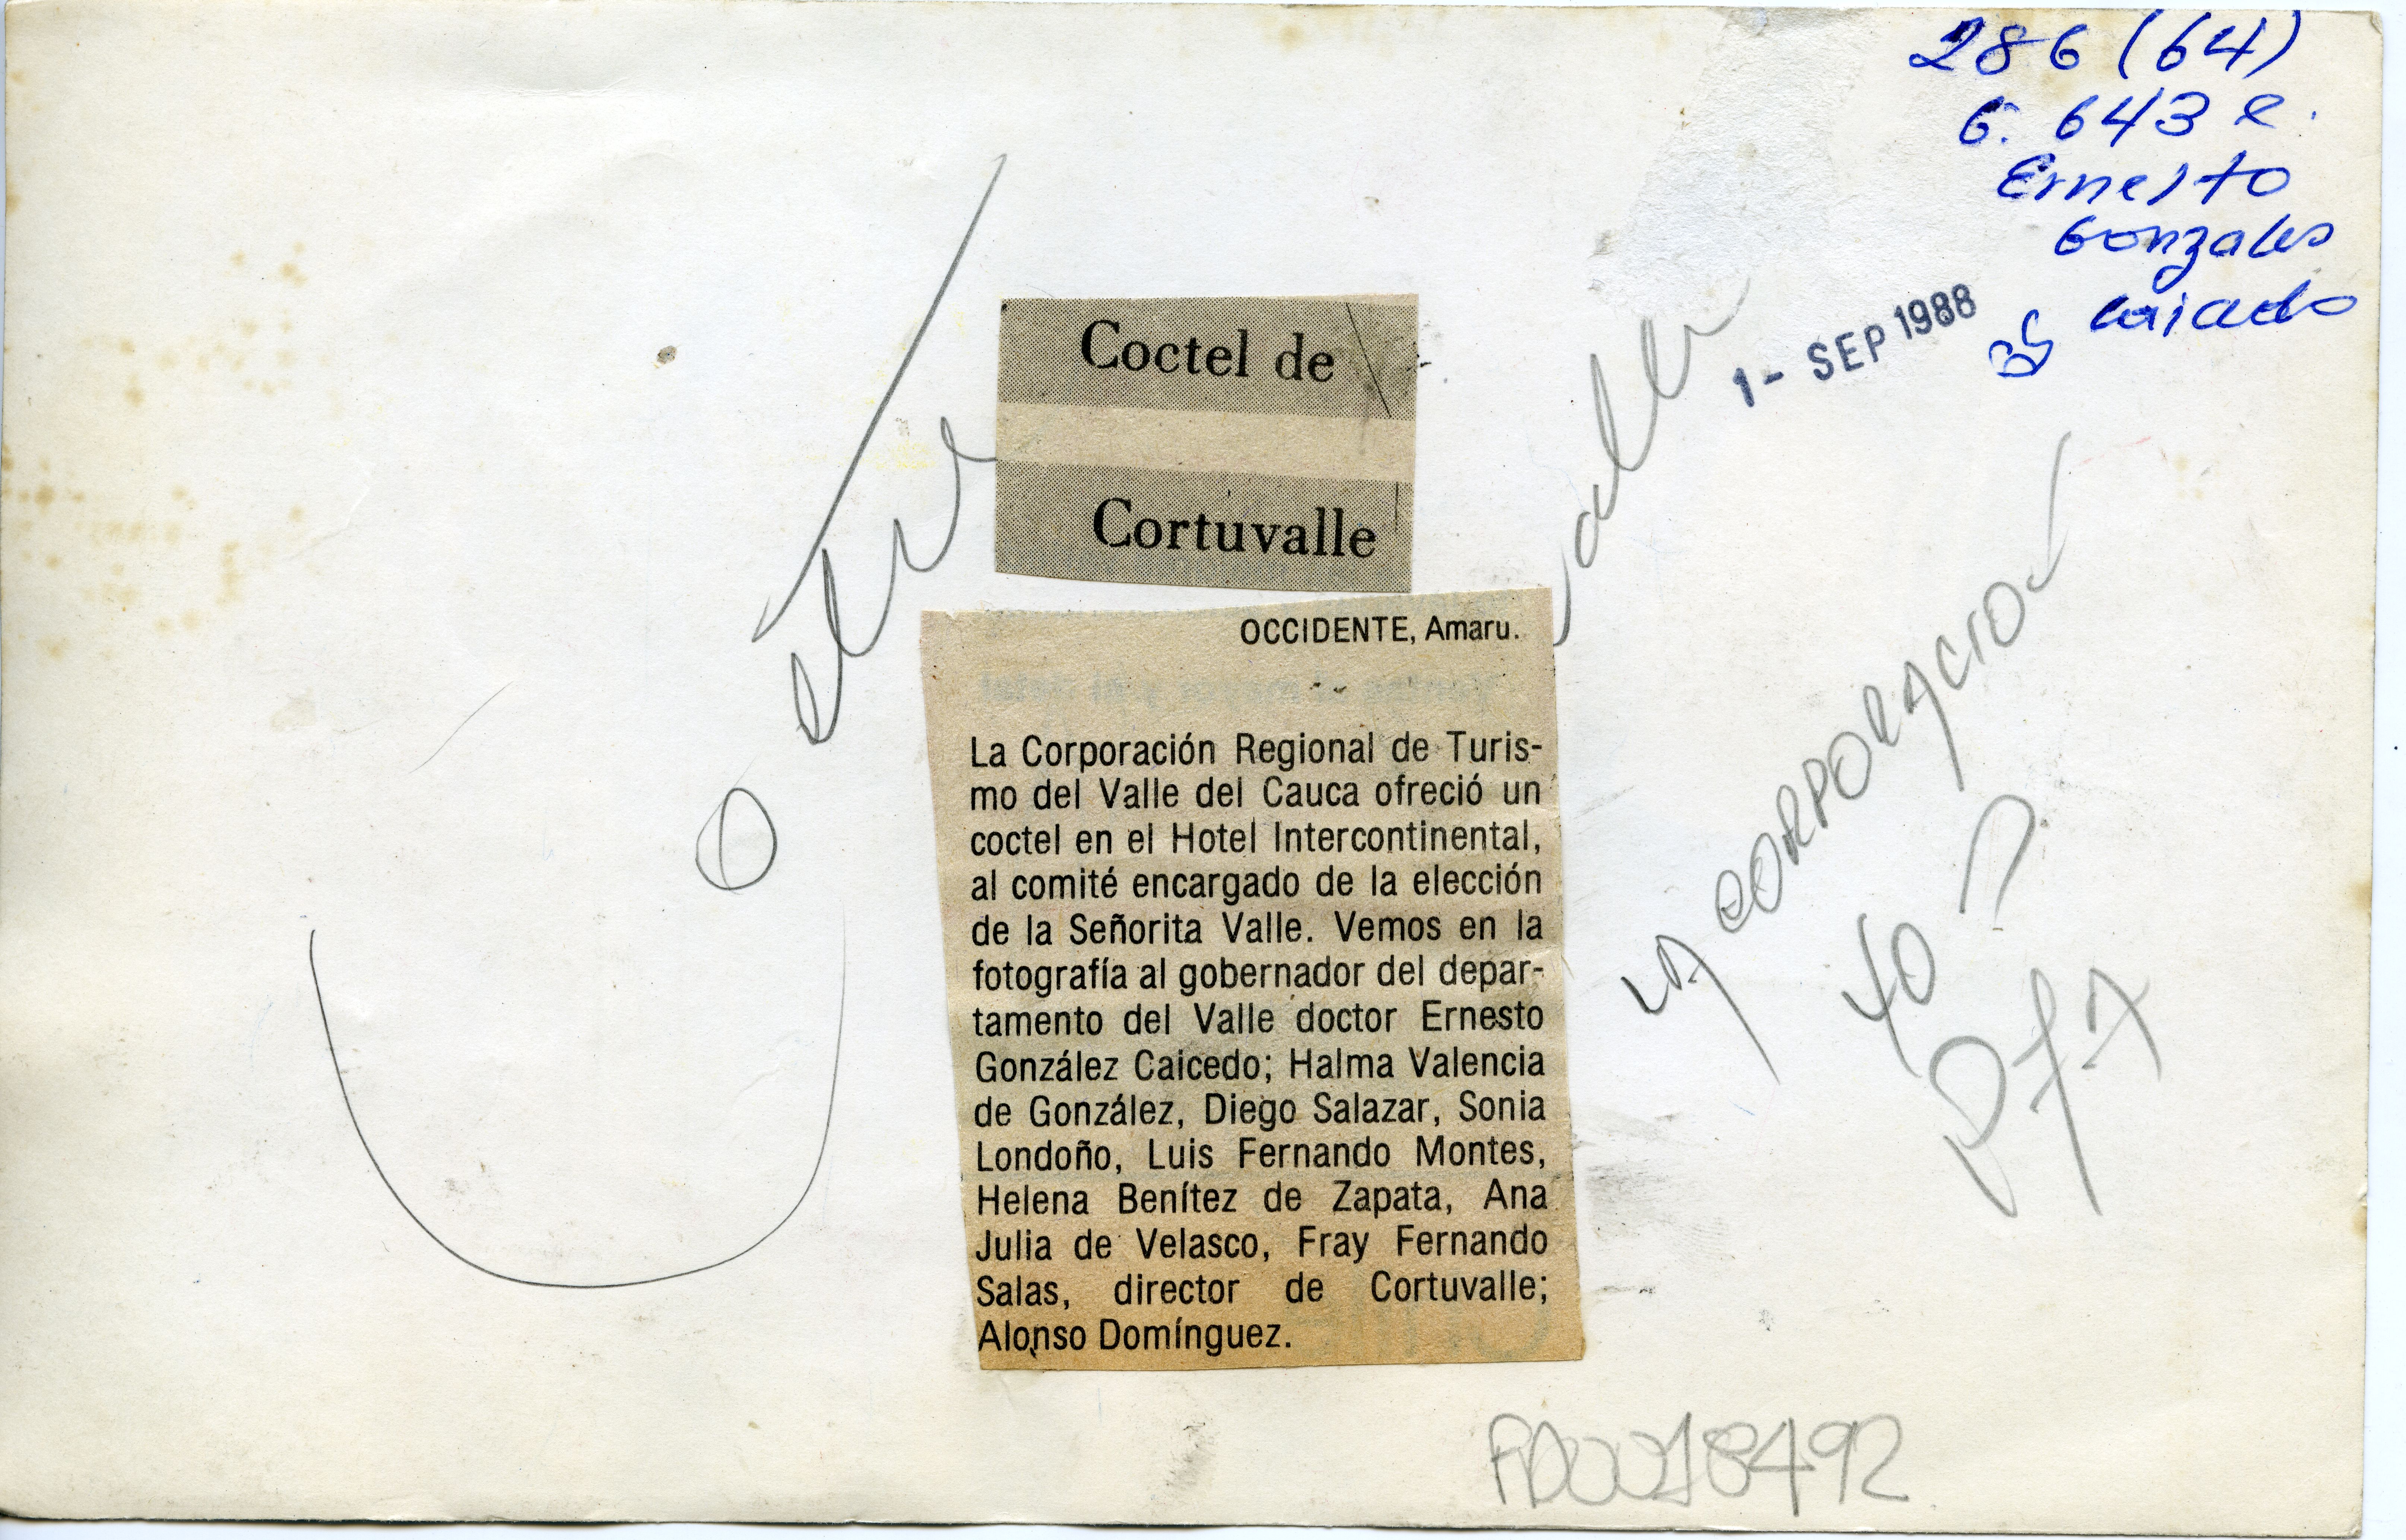 286 (64)
G. 643 e.
Ernesto
Gonzales
Caicedo
1 - SEP 1988
Coctel de
Cortuvalle
OCCIDENTE, Amaru.
La Corporación Regional de Turis-
mo del Valle del Cauca ofreció un
coctel en el Hotel Intercontinental,
al comité encargado de la elección
de la Señorita Valle. Vemos en la
fotografía al gobernador del depar-
tamento del Valle doctor Ernesto
González Caicedo; Halma Valencia
de González, Diego Salazar, Sonia
Londoño, Luis Fernando Montes,
Helena Benítez de Zapata, Ana
Julia de Velasco, Fray Fernando
Salas, director de Cortuvalle;
Alonso Domínguez.
LA CORPORACION
40
FD0018492